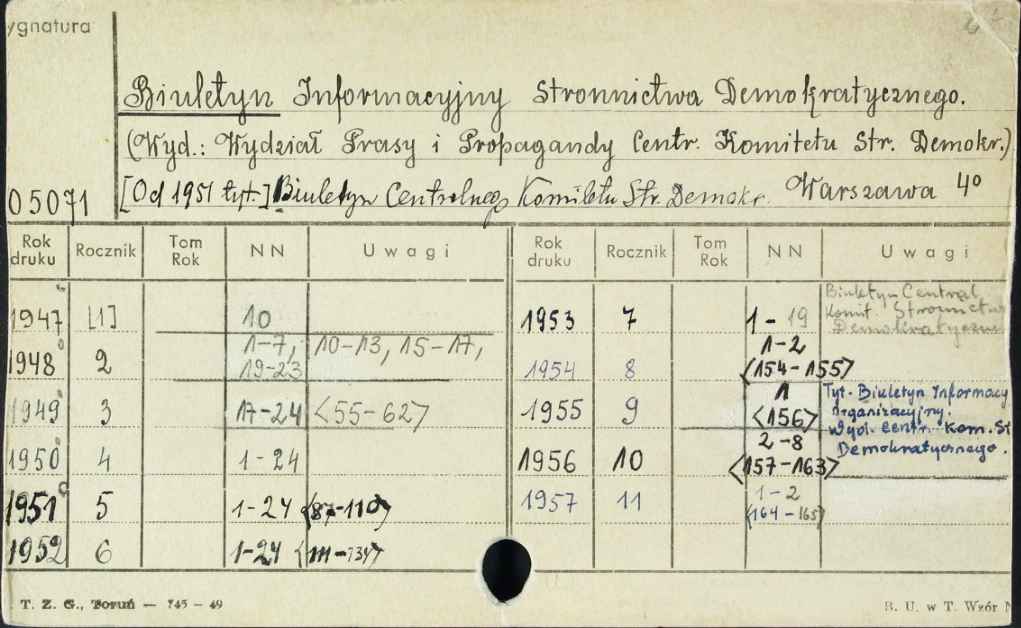 ygnatura
Biuletyn Informacyjny Stronnictwa Demokratycznego.
(Wyd.: Wydział Prasy i Propagandy Centr. Komitetu Str. Demokr.)
05071 [Od 1951 tyt.] Biuletyn Centralnego Komitetu Str. Demokr. Warszawa 4°
Rok druku Rocznik Tom Rok NN Uwagi
1947 [1] 10
1948 2 1-7, 10-13, 15-17, 19-23
1949 3 17-24 <55-62>
1950 4 1-24
1951 5 1-24 <87-110>
1952 6 1-24 <111-134>
Rok druku Rocznik Tom Rok NN Uwagi
1953 7 1-19 Biuletyn Central.
Komit. Stronnictwa
Demokratyczne
1954 8 1-2
<154-155>
1955 9 1
<156> Tyt. Biuletyn Informacy
organizacyjny.
Wyd. Centr. Kom. St
Demokratycznego.
1956 10 2-8
<157-163>
1957 11 1-2
<164-165>
T. Z. G., Toruń — 745 – 49
B. U. w T. Wzór